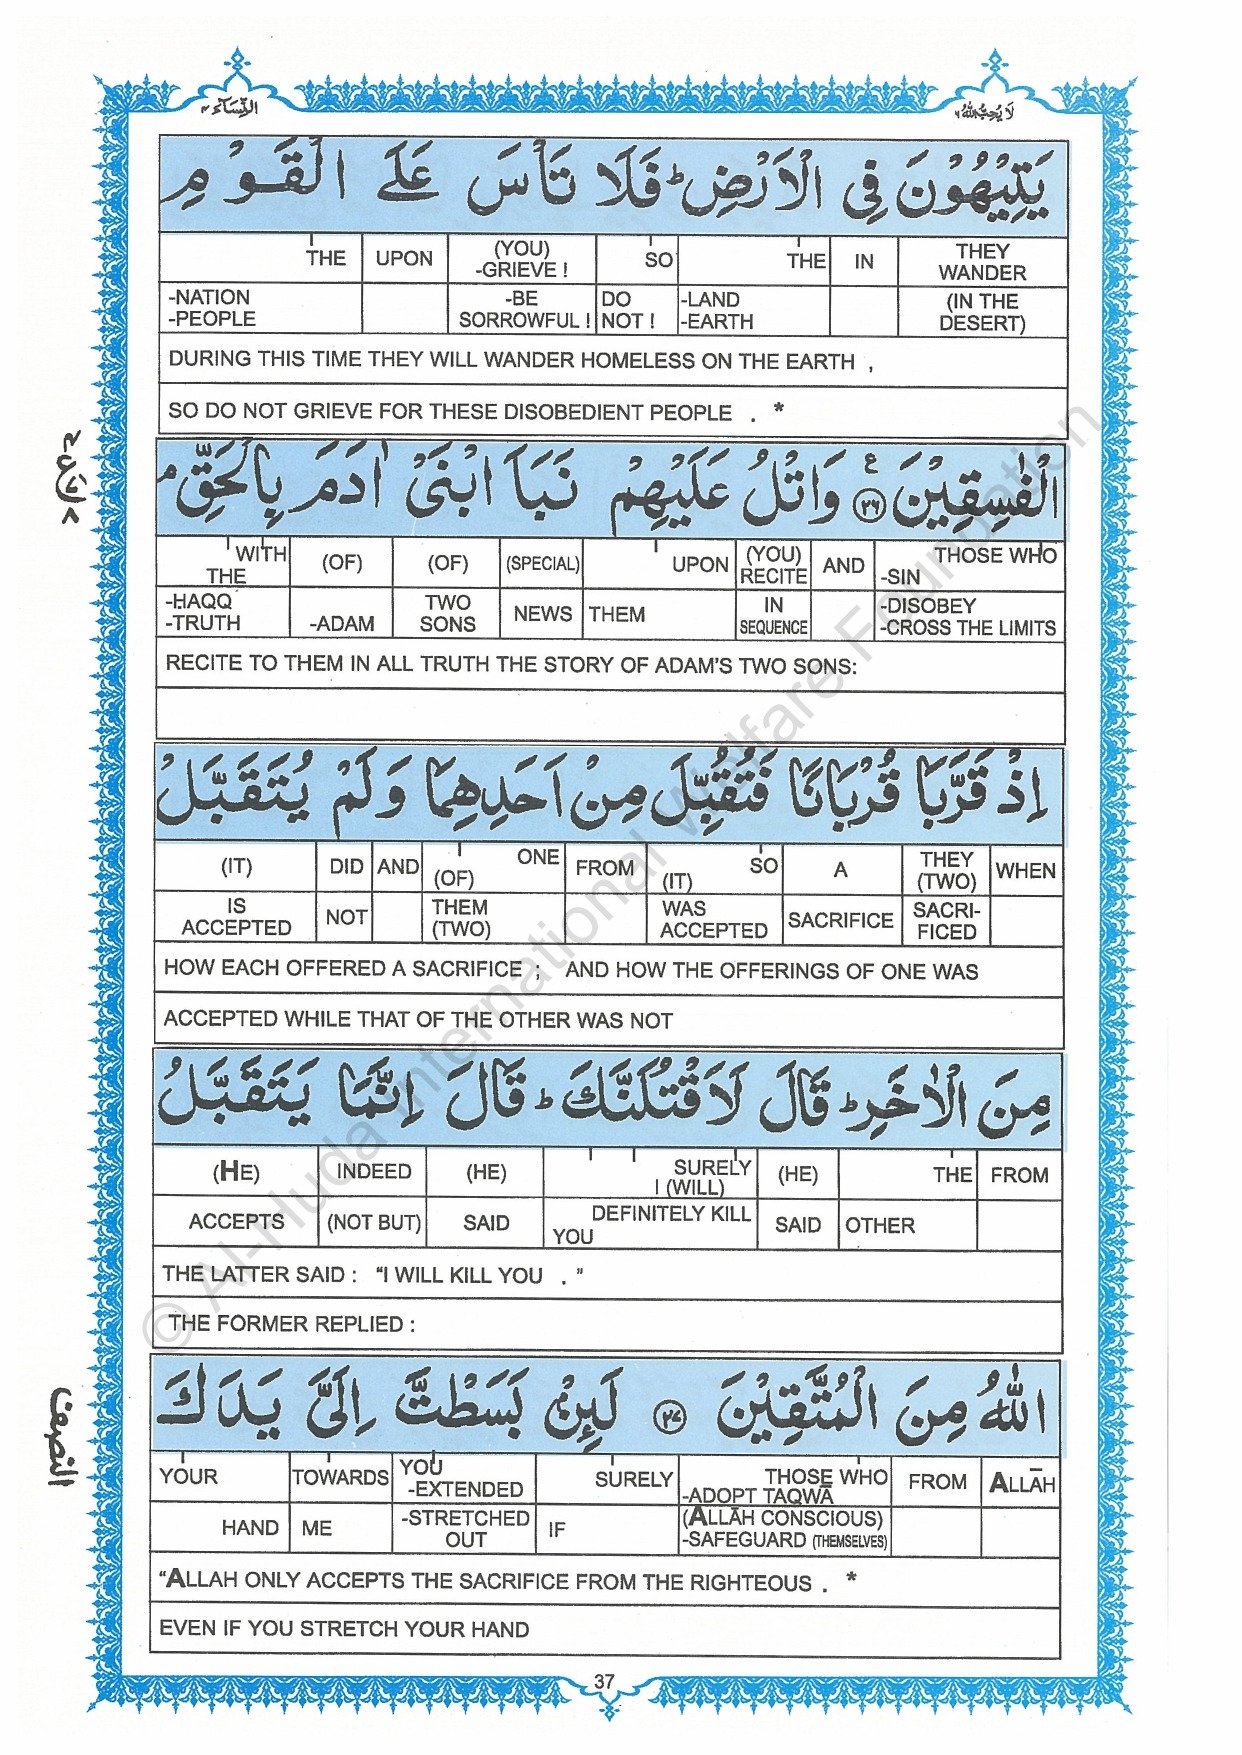 لَا يُحِبُّ اللّٰهُ ٦
النِّسَآء ٤
يَتِيْهُوْنَ فِى الْاَرْضِ ؕ فَلَا تَاْسَ عَلَى الْقَوْمِ
THE UPON (YOU) -GRIEVE ! SO THE IN THEY WANDER
-NATION -PEOPLE -BE SORROWFUL ! DO NOT ! -LAND -EARTH (IN THE DESERT)
DURING THIS TIME THEY WILL WANDER HOMELESS ON THE EARTH ,
SO DO NOT GRIEVE FOR THESE DISOBEDIENT PEOPLE . *
الْفٰسِقِيْنَ ۲۶ ع وَاتْلُ عَلَيْهِمْ نَبَاَ ابْنَىْ اٰدَمَ بِالْحَقِّ ۘ
WITH THE (OF) (OF) (SPECIAL) UPON (YOU) RECITE AND THOSE WHO -SIN
-HAQQ -TRUTH -ADAM TWO SONS NEWS THEM IN SEQUENCE -DISOBEY -CROSS THE LIMITS
RECITE TO THEM IN ALL TRUTH THE STORY OF ADAM'S TWO SONS:
اِذْ قَرَّبَا قُرْبَانًا فَتُقُبِّلَ مِنْ اَحَدِهِمَا وَلَمْ يُتَقَبَّلْ
(IT) DID AND (OF) ONE FROM (IT) SO A THEY (TWO) WHEN
IS ACCEPTED NOT THEM (TWO) WAS ACCEPTED SACRIFICE SACRI- FICED
HOW EACH OFFERED A SACRIFICE ; AND HOW THE OFFERINGS OF ONE WAS
ACCEPTED WHILE THAT OF THE OTHER WAS NOT
مِنَ الْاٰخَرِ ؕ قَالَ لَاَقْتُلَنَّكَ ؕ قَالَ اِنَّمَا يَتَقَبَّلُ
(HE) INDEED (HE) SURELY I (WILL) (HE) THE FROM
ACCEPTS (NOT BUT) SAID DEFINITELY KILL YOU SAID OTHER
THE LATTER SAID : “I WILL KILL YOU . ”
THE FORMER REPLIED :
اللّٰهُ مِنَ الْمُتَّقِيْنَ ۲۷ لَئِنْۢ بَسَطْتَّ اِلَىَّ يَدَكَ
YOUR TOWARDS YOU -EXTENDED SURELY THOSE WHO -ADOPT TAQWĀ FROM ALLĀH
HAND ME -STRETCHED OUT IF (ALLĀH CONSCIOUS) -SAFEGUARD (THEMSELVES)
“ALLAH ONLY ACCEPTS THE SACRIFICE FROM THE RIGHTEOUS . *
EVEN IF YOU STRETCH YOUR HAND
النصف
37
© Al-Huda International Welfare Foundation